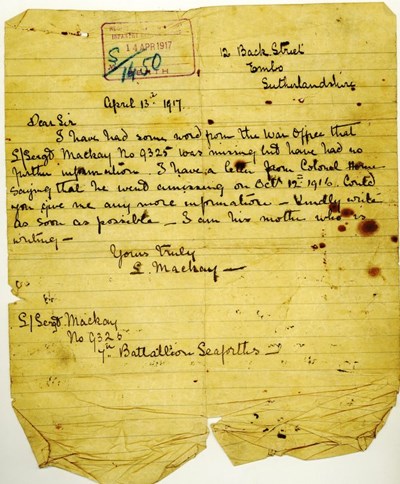 INFANTRY
14 APR 1917
PERTH
S/1450
12 Back Street
Embo
Sutherlandshire
April 13th 1917.
Dear Sir
I have had some word from the War Office that
L/Sergt. Mackay No 9325 was missing but have had no
further information. I have a letter from Colonel Horne
saying that he went amissing on Octr 12th 1916. Could
you give me any more information – Kindly write
as soon as possible – I am his mother who is
writing –
Yours truly
L. Mackay –
L/Sergt. Mackay
No 9325
7th Battallion Seaforths –